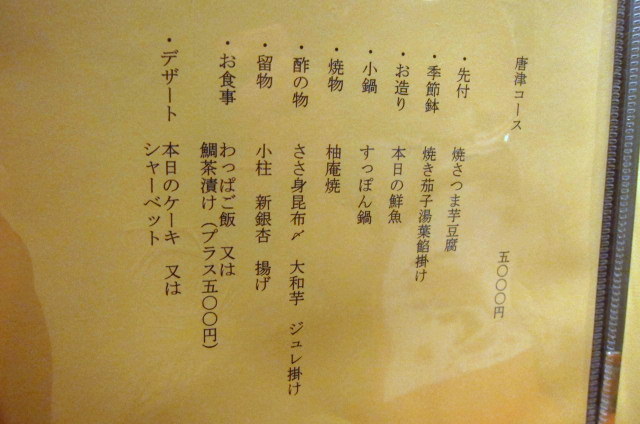 唐津コース
五〇〇〇円
・先付 焼さつま芋豆腐
・季節鉢 焼き茄子湯葉餡掛け
・お造り 本日の鮮魚
・小鍋 すっぽん鍋
・焼物 柚庵焼
・酢の物 ささ身昆布〆 大和芋 ジュレ掛け
・留物 小柱 新銀杏 揚げ
・お食事 わっぱご飯 又は
鯛茶漬け（プラス五〇〇円）
・デザート 本日のケーキ 又は
シャーベット